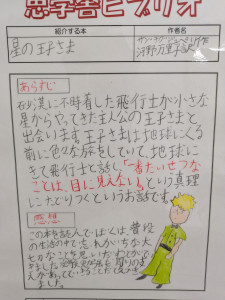 思学舎ビブリオ
紹介する本
作者名
星の王子さま
サン=テグジュペリ作
河野万里子訳
あらすじ
砂漠に不時着した飛行士が小さな
星からやってきた主人公の王子さまと
出会います。王子さまは地球にくる
前に色々な旅をしていて地球に
きて飛行士と話し「一番たいせつな
ことは、目に見えない」という真理
にたどりつくというお話です。
感想
この本を読んでぼくは、普段
の生活の中で忘れがちな大
せつなことを思い
ました。